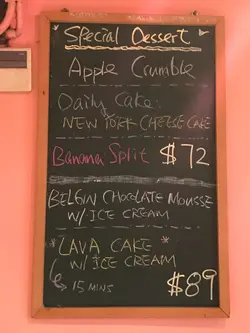 Special Dessert
Apple Crumble
Daily Cake:
NEW YORK CHEESE CAKE
Banana Split $72
BELGIN CHOCOLATE MOUSSE
W/ ICE CREAM
*LAVA CAKE *
W/ ICE CREAM
15 MINS
$89